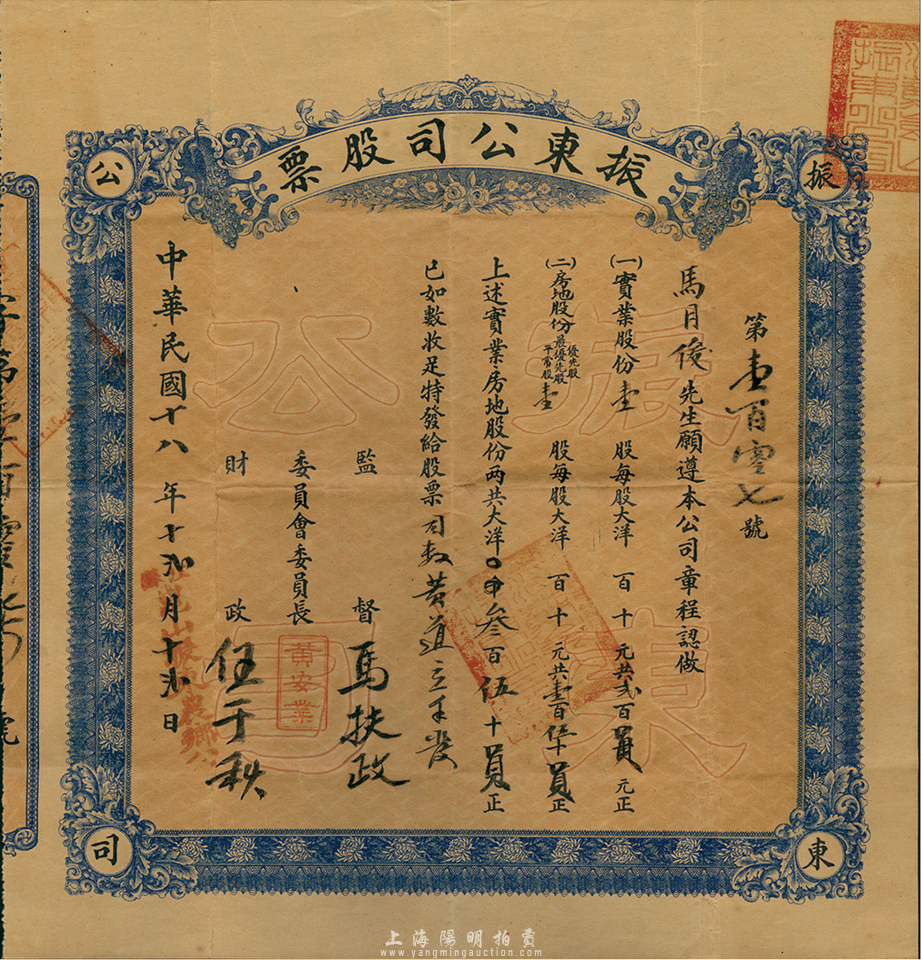 振東公司股票
振
東
公
司
第壹百零七號
馬月俊先生願遵本公司章程認做
(一)實業股份壹 股每股大洋 百十 元共弍百員元正
(二)房地股份 優先股 最優先股 平常股 壹 股每股大洋 百十 元共壹百伍十員正
上述實業房地股份两共大洋 叁百伍十員正
已如數收足特發給股票 黄道立 發
監督 馬扶政
委員會委員長 黃安業
財政 伍于秋
中華民國十八年十 月十 日
振東
公司
上海陽明拍賣
www.yangmingauction.com